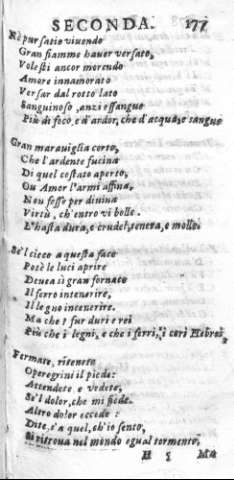 SECONDA. 177
Nè pur satio viuendo
Gran fiamme hauer versato,
Volesti ancor morendo
Amore innamorato
Versar dal rotto lato
Sanguinoso, anzi essangue
Più di foco, e d'ardor, che d'acqua, e sangue
Gran marauiglia certo,
Che l'ardente fucina
Di quel costato aperto,
Ou Amor l'armi affina,
Non fosse per diuina
Virtù, ch'entro vi bolle.
L'hasta dura, e crudel, tenera, e molle.
Se'l cieco a questa face
Potè le luci aprire
Deuea sì gran fornace
Il ferro intenerire,
Il legno incenerire.
Ma che? fur duri e rei
Più che i legni, e che i ferri, i cori Hebrei.
Fermate, ritenete
O peregrini il piede:
Attendete e vedete,
Se'l dolor, che mi fiede.
Altro dolor eccede:
Dite, s'a quel, ch'io sento,
Si ritroua nel mondo egual tormento.
H 5 Ma